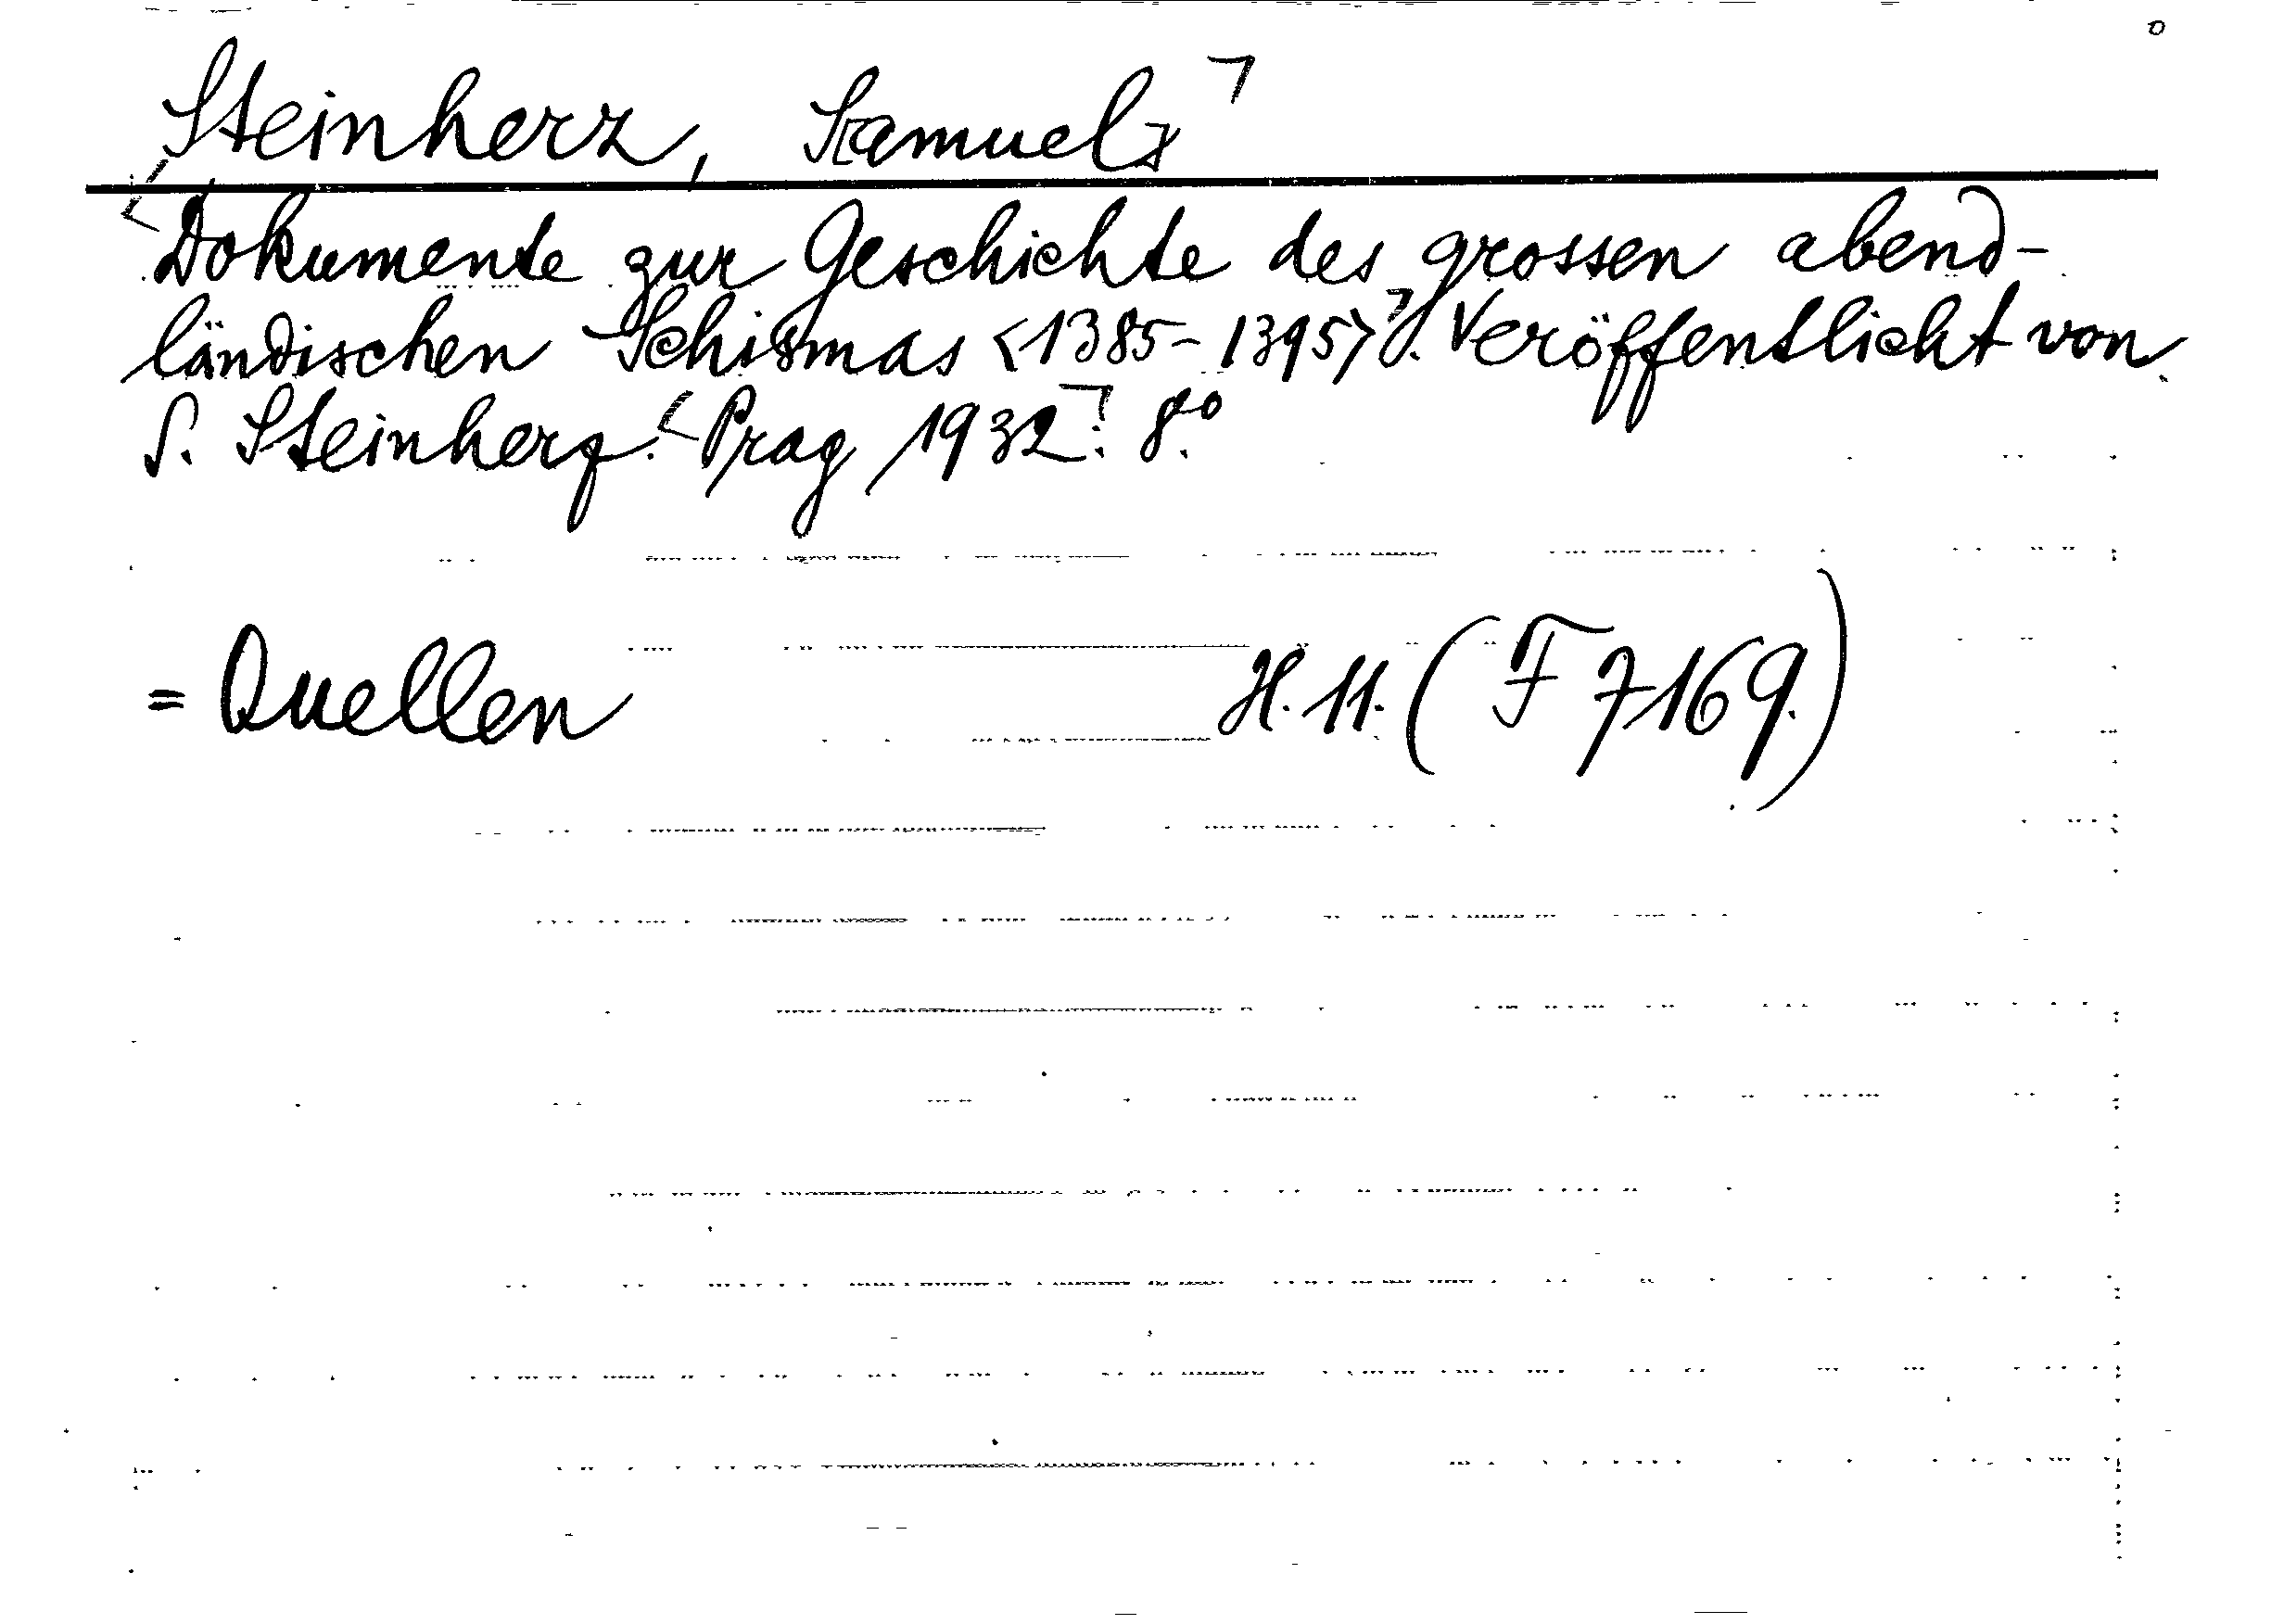 Steinherz, S[amuel]
Dokumente zur Geschichte des grossen abend-
ländischen Schismas <1385-1395>. Veröffentlicht von
S. Steinherz. Prag 1932. 8°.
= Quellen H. 11. (F 7169.)